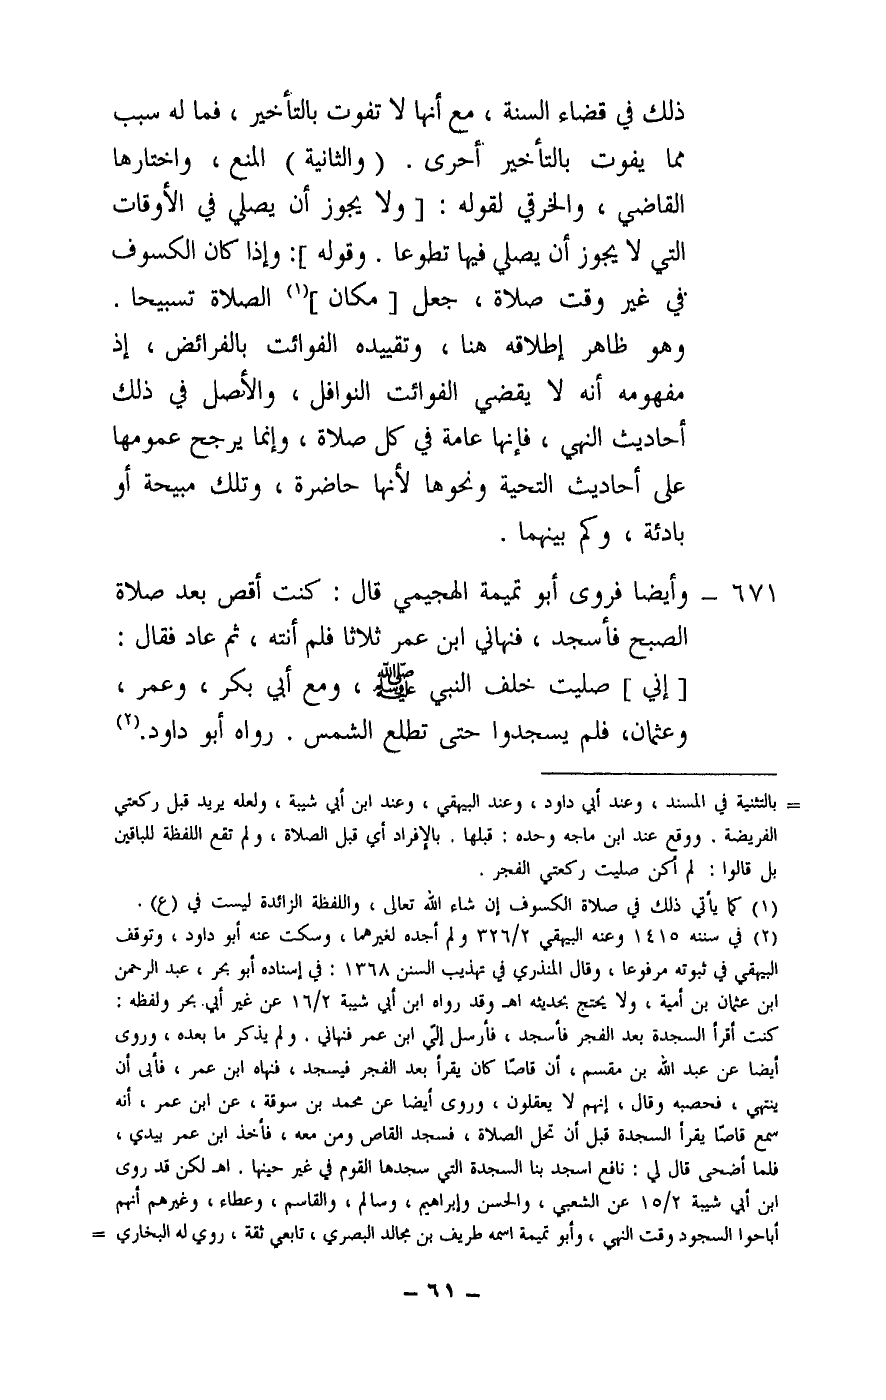 ذلك في قضاء السنة ، مع أنها لا تفوت بالتأخير ، فما له سبب
مما يفوت بالتأخير أحرى . ( والثانية ) المنع ، واختارها
القاضي ، والخرقي لقوله : [ ولا يجوز أن يصلي في الأوقات
التي لا يجوز أن يصلي فيها تطوعا . وقوله ]: وإذا كان الكسوف
في غير وقت صلاة ، جعل [ مكان ](١) الصلاة تسبيحا .
وهو ظاهر إطلاقه هنا ، وتقييده الفوائت بالفرائض ، إذ
مفهومه أنه لا يقضي الفوائت النوافل ، والأصل في ذلك
أحاديث النهي ، فإنها عامة في كل صلاة ، وإنما يرجح عمومها
على أحاديث التحية ونحوها لأنها حاضرة ، وتلك مبيحة أو
بادئة ، وكم بينهما .
٦٧١ – وأيضا فروى أبو تميمة الهجيمي قال : كنت أقص بعد صلاة
الصبح فأسجد ، فنهاني ابن عمر ثلاثا فلم أنته ، ثم عاد فقال :
[ إني ] صليت خلف النبي ﷺ ، ومع أبي بكر ، وعمر ،
وعثمان، فلم يسجدوا حتى تطلع الشمس . رواه أبو داود.(٢)
= بالتثنية في المسند ، وعند أبي داود ، وعند البيهقي ، وعند ابن أبي شيبة ، ولعله يريد قبل ركعتي
الفريضة . ووقع عند ابن ماجه وحده : قبلها . بالإفراد أي قبل الصلاة ، ولم تقع اللفظة للباقين
بل قالوا : لم أكن صليت ركعتي الفجر .
(١) كما يأتي ذلك في صلاة الكسوف إن شاء الله تعالى ، واللفظة الزائدة ليست في (ع) .
(٢) في سننه ١٤١٥ وعنه البيهقي ٣٢٦/٢ ولم أجده لغيرهما ، وسكت عنه أبو داود ، وتوقف
البيهقي في ثبوته مرفوعا ، وقال المنذري في تهذيب السنن ١٣٦٨ : في إسناده أبو بحر ، عبد الرحمن
ابن عثمان بن أمية ، ولا يحتج بحديثه اهـ وقد رواه ابن أبي شيبة ١٦/٢ عن غير أبي بحر ولفظه :
كنت أقرأ السجدة بعد الفجر فأسجد ، فأرسل إليّ ابن عمر فنهاني . ولم يذكر ما بعده ، وروى
أيضا عن عبد الله بن مقسم ، أن قاصًا كان يقرأ بعد الفجر فيسجد ، فنهاه ابن عمر ، فأبى أن
ينتهي ، فحصبه وقال ، إنهم لا يعقلون ، وروى أيضا عن محمد بن سوقة ، عن ابن عمر ، أنه
سمع قاصًا يقرأ السجدة قبل أن تحل الصلاة ، فسجد القاص ومن معه ، فأخذ ابن عمر بيدي ،
فلما أضحى قال لي : نافع اسجد بنا السجدة التي سجدها القوم في غير حينها . اهـ لكن قد روى
ابن أبي شيبة ١٥/٢ عن الشعبي ، والحسن وإبراهيم ، وسالم ، والقاسم ، وعطاء ، وغيرهم أنهم
أباحوا السجود وقت النهي ، وأبو تميمة اسمه طريف بن مجالد البصري ، تابعي ثقة ، روي له البخاري =
– ٦١ –